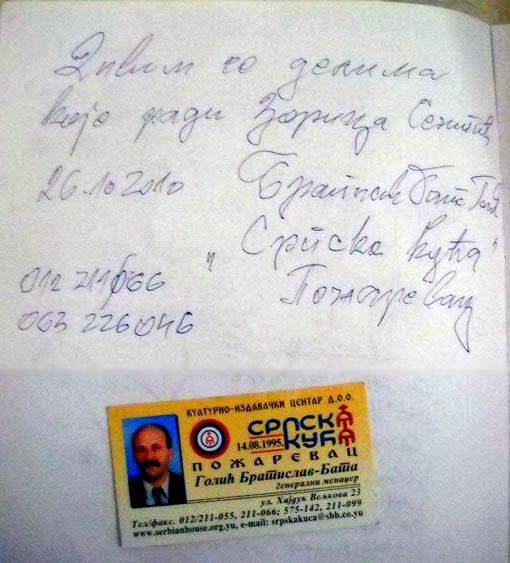 Дивим се делима
које ради Зорица Сентић
26.10 2010 Братислав Бата Голић
"Српска кућа"
012 211 066 Пожаревац
063 226 046
КУЛТУРНО-ИЗДАВАЧКИ ЦЕНТАР Д.О.О.
14.08.1995. СРПСКА
КУЋА
ПОЖАРЕВАЦ
Голић Братислав-Бата
генерални менаџер
ул. Хајдук Вељкова 23
Тел/факс. 012/211-055, 211-066; 575-142, 211-099
www.serbianhouse.org.yu, e-mail: srpskakuca@sbb.co.yu